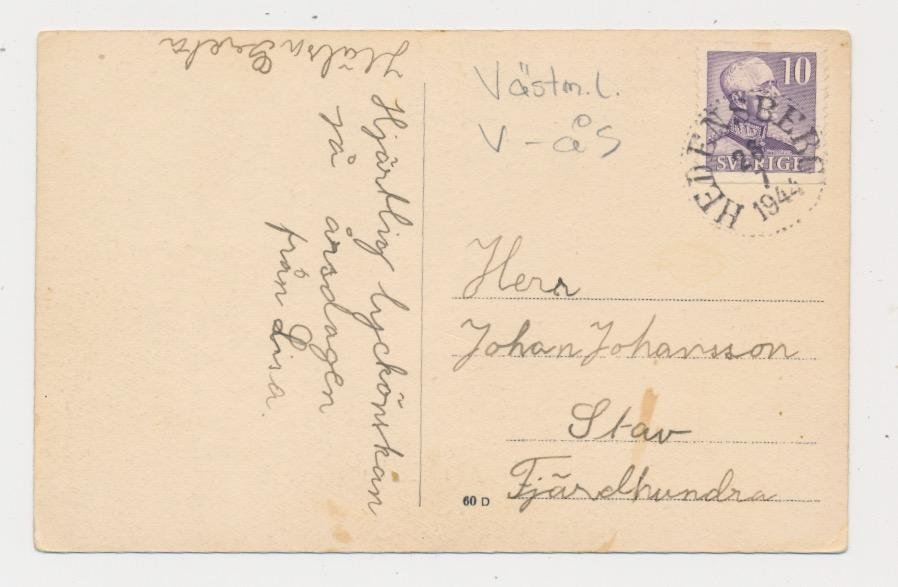 Hälsa Greta
Hjärtlig lyckönskan
på årsdagen
från Lisa.
Västm.l.
V-ås
10
SVERIGE
HEDENSBERG
25
7
1944
Herr
Johan Johansson
Stav
Fjärdhundra
60 D